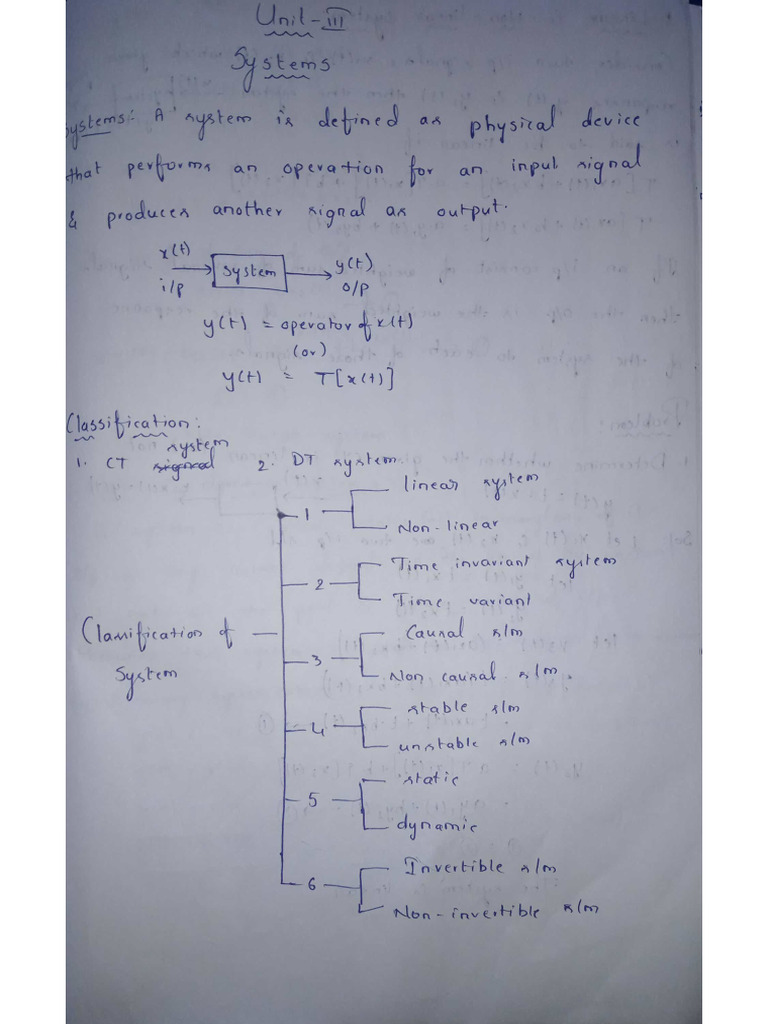 Unit-III
Systems
Systems: A system is defined as physical device
that performs an operation for an input signal
& produces another signal as output.
x(t)
i/p
system
y(t)
o/p
y(t) = operator of x(t)
(or)
y(t) = T[x(t)]
Classification:
1. CT system 2. DT system
Classification of
System
1
linear system
Non-linear
2
Time invariant system
Time variant
3
Causal s/m
Non causal s/m.
4
stable s/m
unstable s/m
5
static
dynamic
6
Invertible s/m
Non-invertible s/m